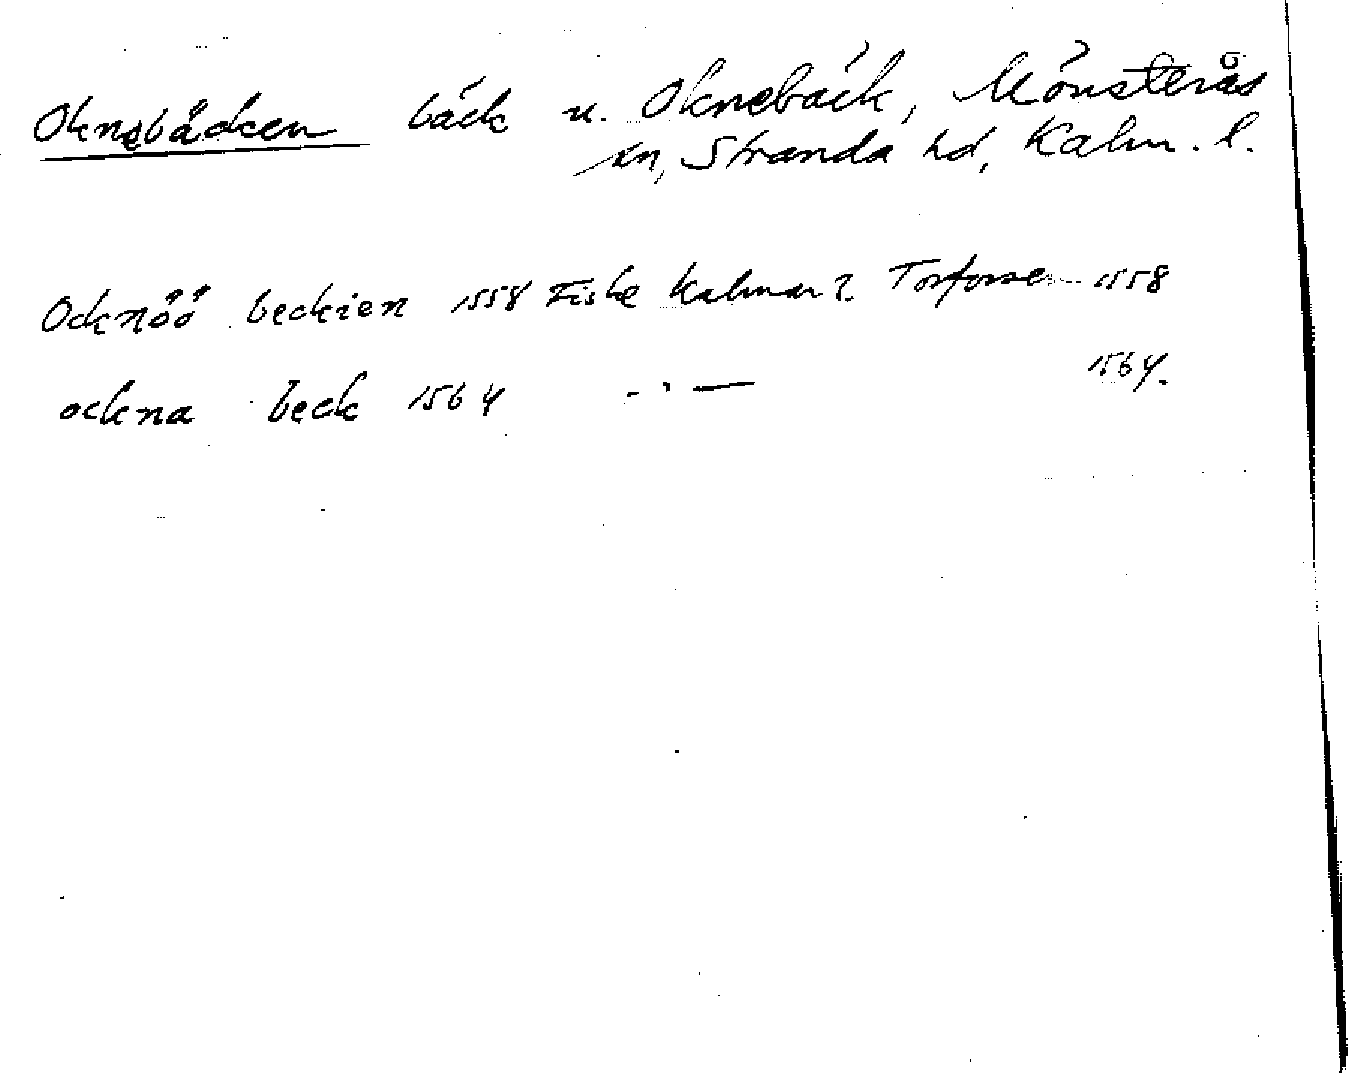 Oknebäcken bäck u. Oknebäck, Mönsterås
sn, Stranda hd, Kalm. l.
Ocknöö beckien 1558 Fiske Kalmar 2 1558
ockna beck 1564 -"- 1564.